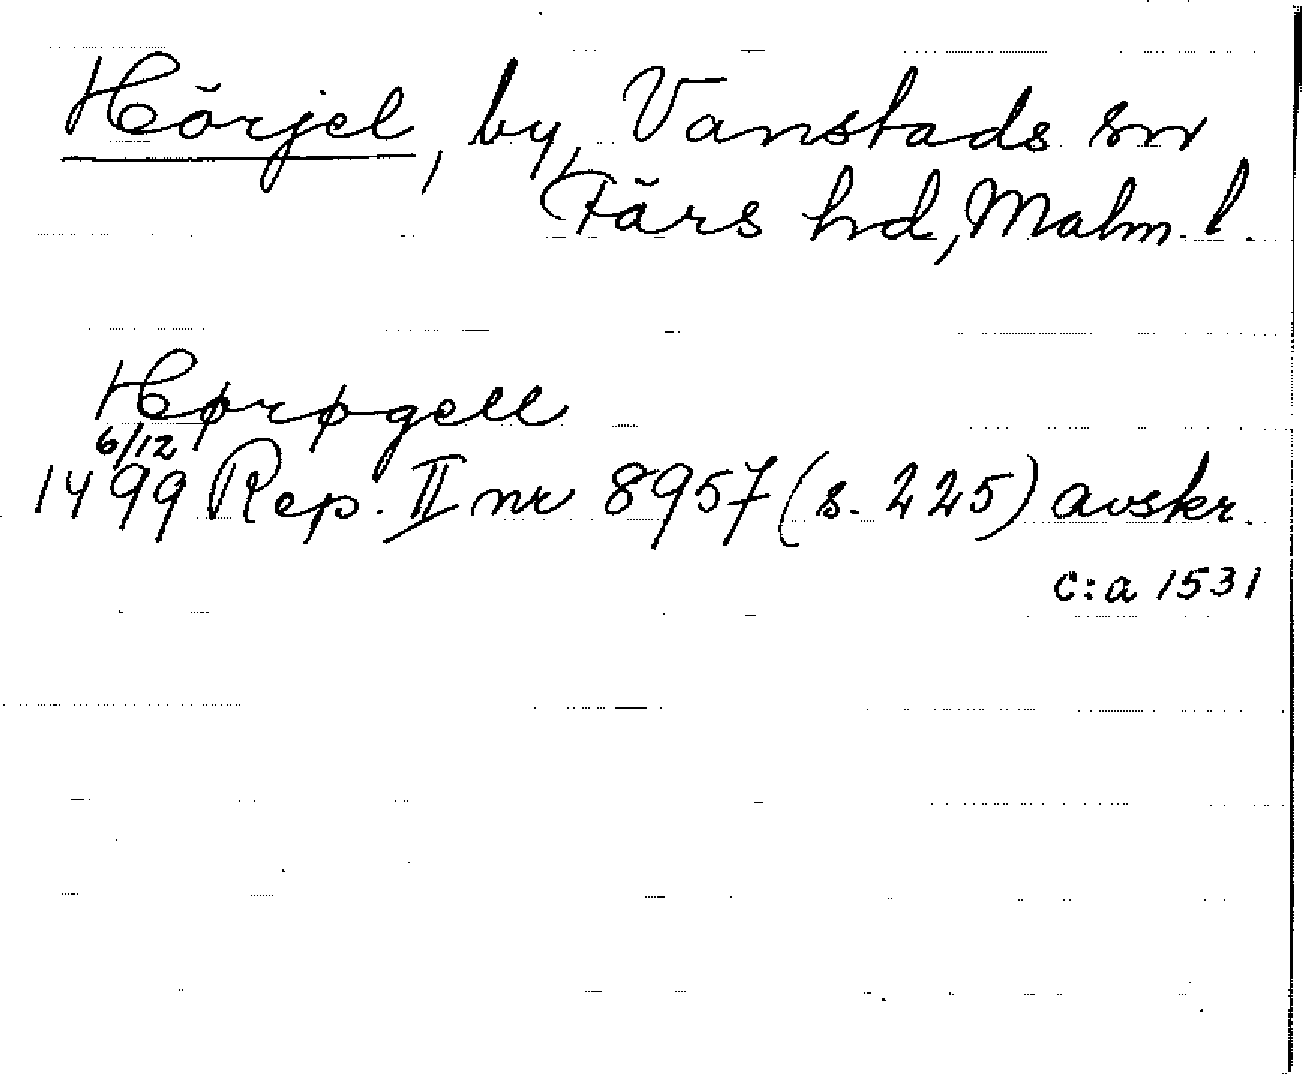 Hörjel, by, Vanstads sn
Färs hd, Malm. l.
Hørøgell
6/12
1499 Rep. II nr 8957 (s. 225) avskr.
c:a 1531